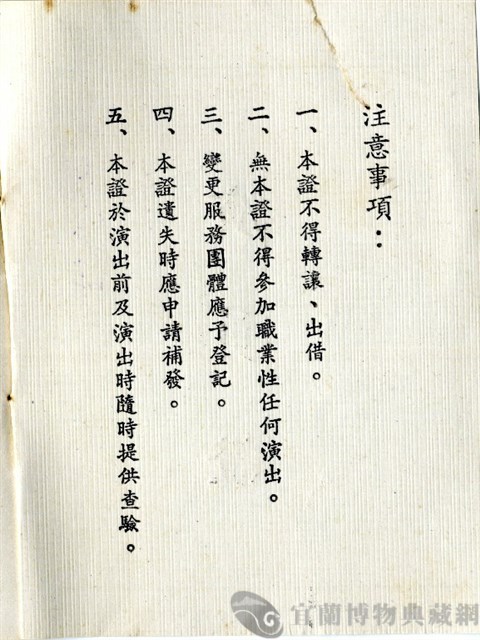 注意事項：
一、本證不得轉讓、出借。
二、無本證不得參加職業性任何演出。
三、變更服務團體應予登記。
四、本證遺失時應申請補發。
五、本證於演出前及演出時隨時提供查驗。
宜蘭博物典藏網